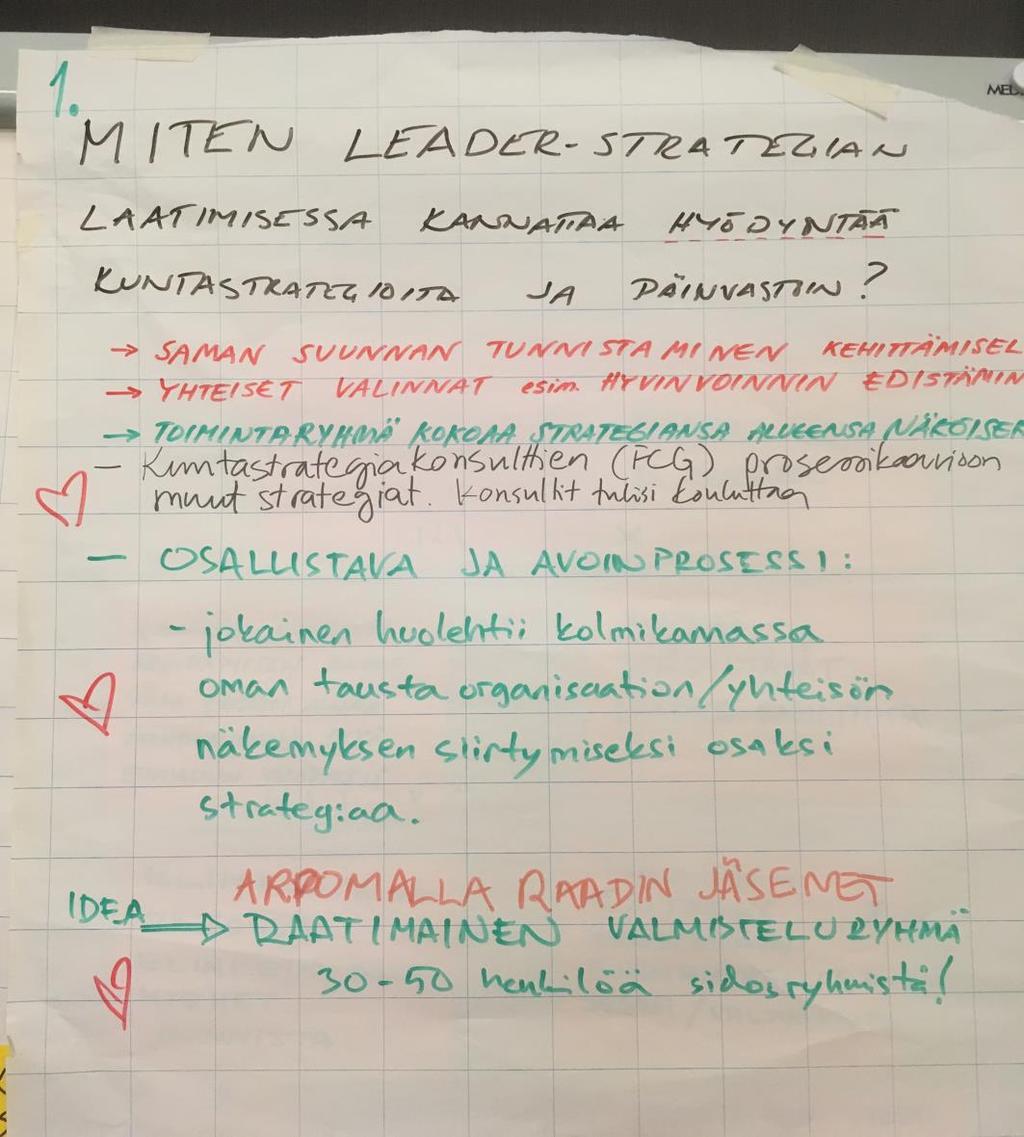 1.
MEL
MITEN LEADER-STRATEGIAN
LAATIMISESSA KANNATTAA HYÖDYNTÄÄ
KUNTASTRATEGIOITA JA PÄINVASTOIN?
→ SAMAN SUUNNAN TUNNISTAMINEN KEHITTÄMISEL
→ YHTEISET VALINNAT esim. HYVINVOINNIN EDISTÄMIN
→ TOIMINTARYHMÄ KOKOAA STRATEGIANSA ALUEENSA NÄKÖISEK
- Kuntastrategiakonsulttien (FCG) prosessikaavioon
muut strategiat. Konsultit tulisi kouluttaa
- OSALLISTAVA JA AVOIN PROSESSI:
- jokainen huolehtii kolmikannassa
oman tausta organisaation/yhteisön
näkemyksen siirtymiseksi osaksi
strategiaa.
ARPOMALLA RAADIN JÄSENET
IDEA ⇒ RAATIMAINEN VALMISTELURYHMÄ
30-50 henkilöä sidosryhmistä!